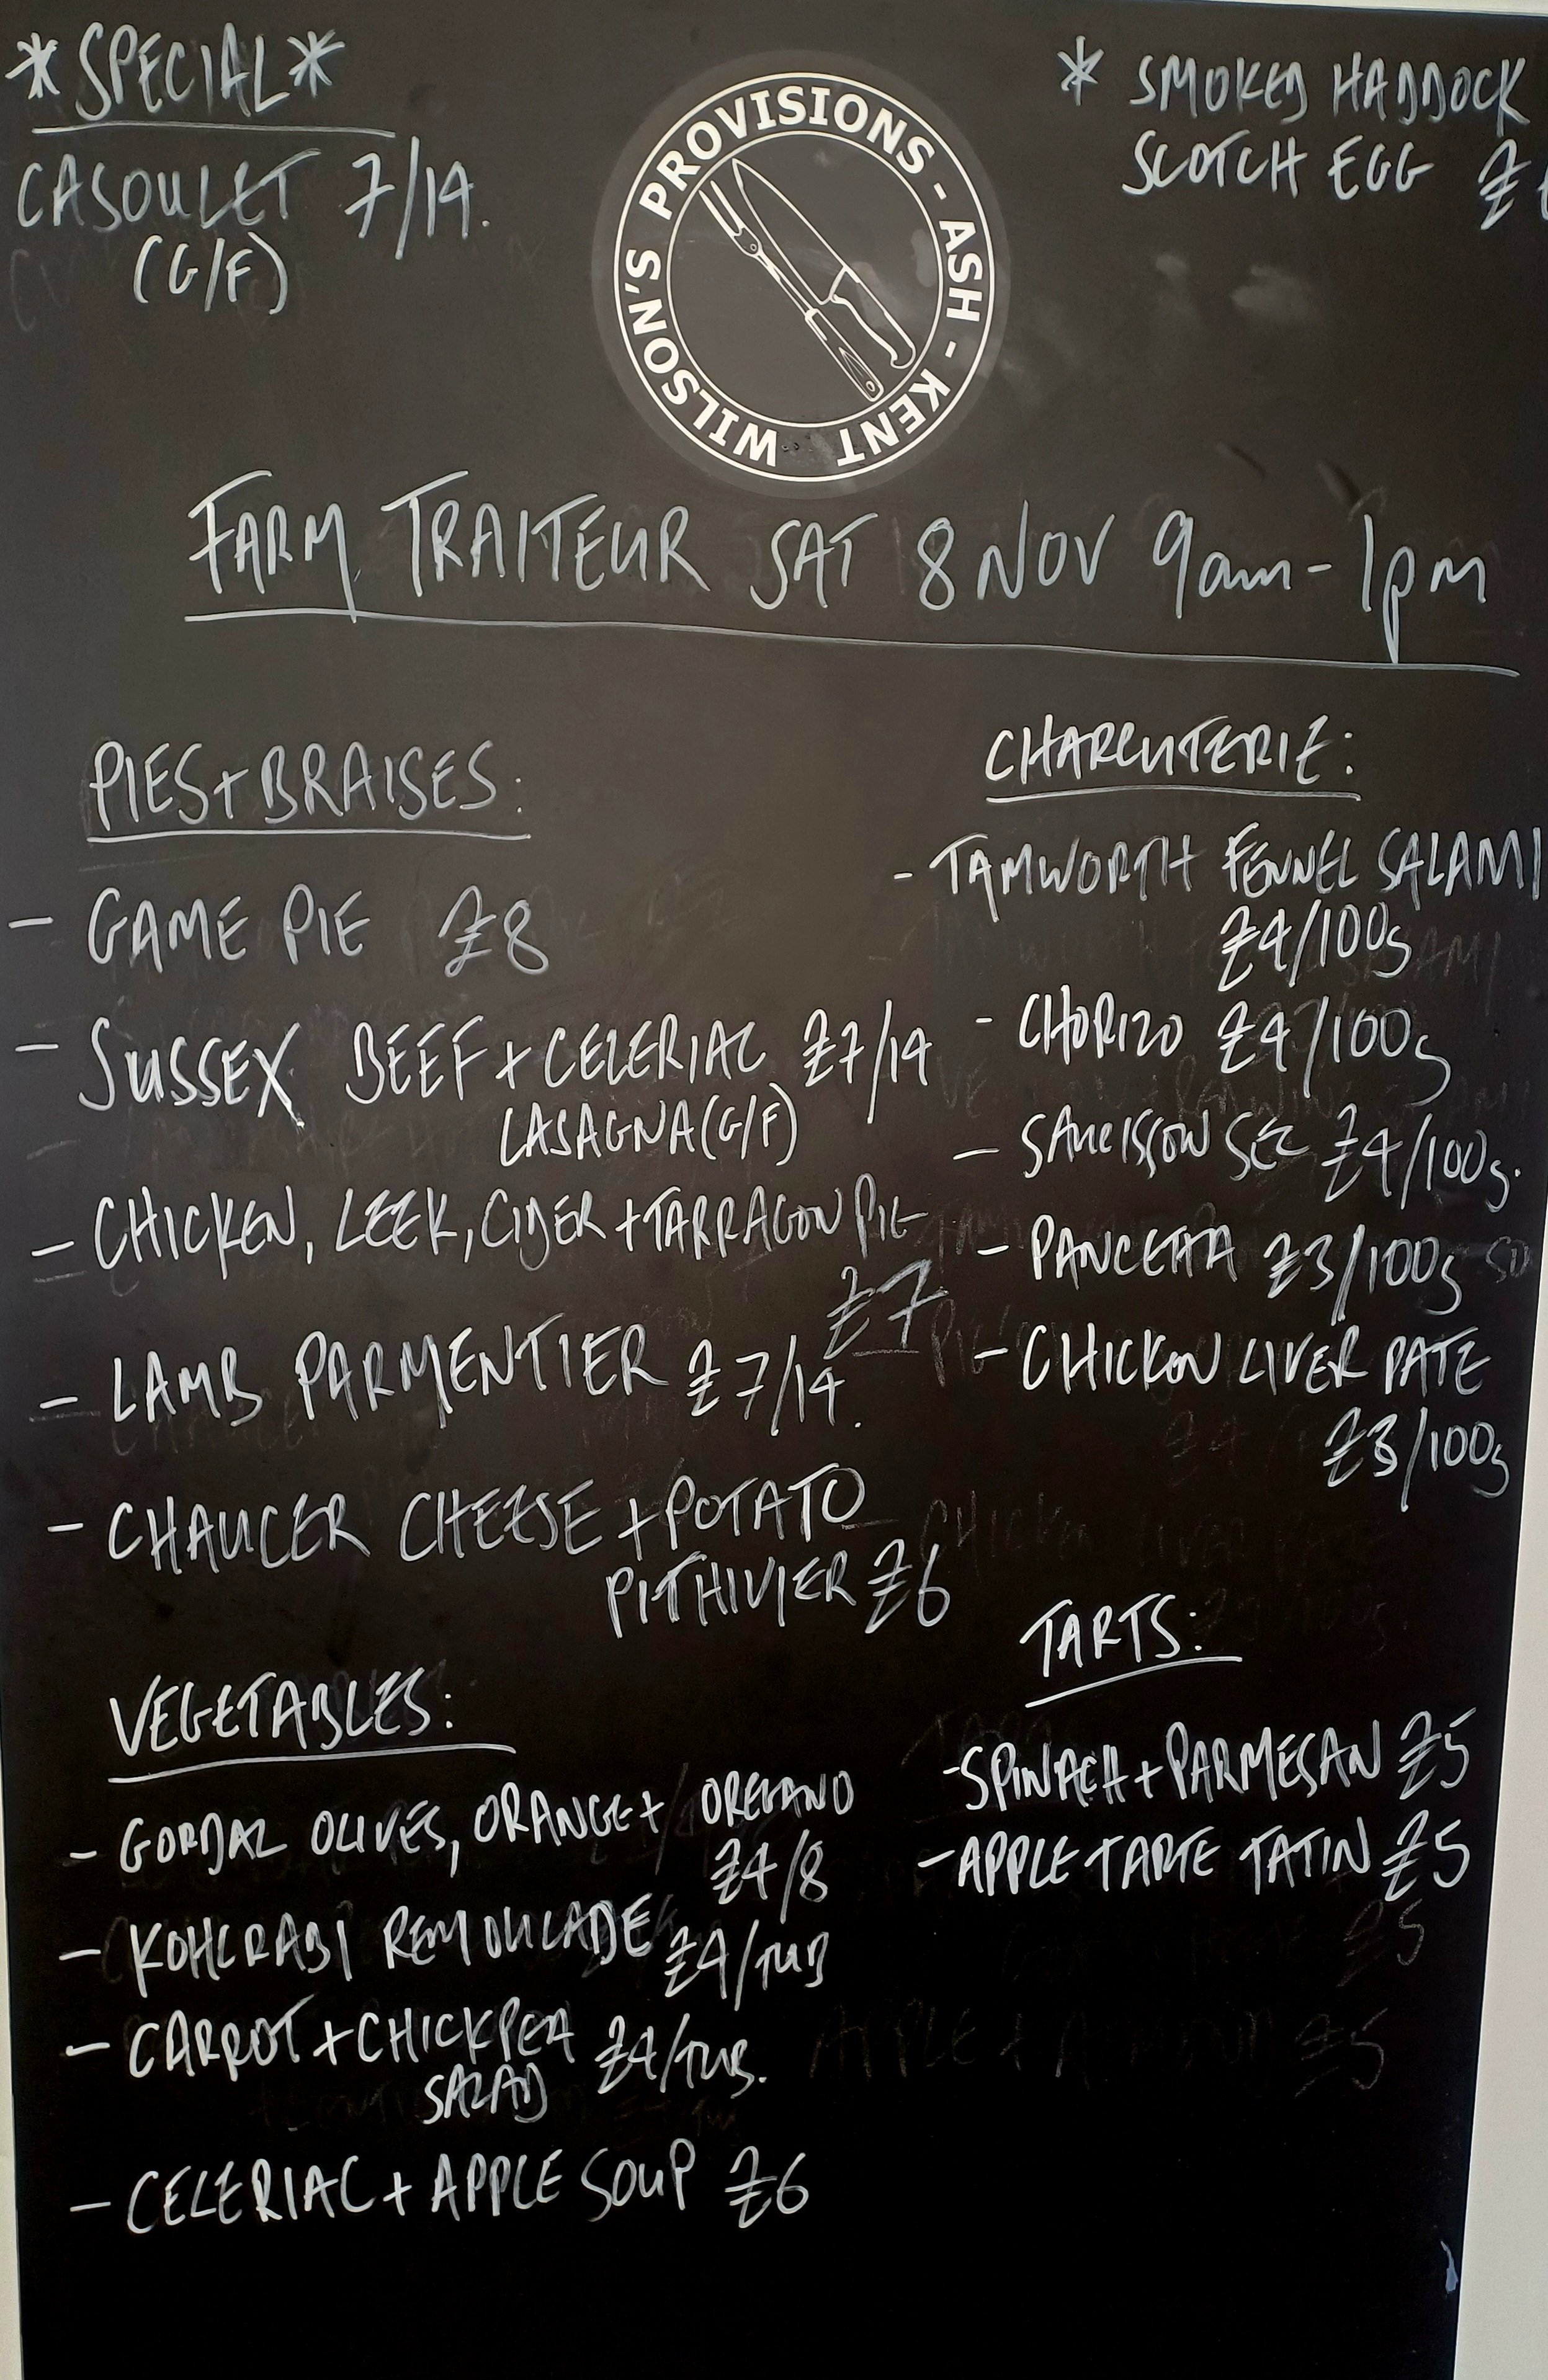 *SPECIAL*
CASOULET 7/14.
(G/F)
* SMOKED HADDOCK
SCOTCH EGG £
WILSON'S PROVISIONS - ASH - KENT
FARM TRAITEUR SAT 8 NOV 9am-1pm
PIES+BRAISES:
- GAME PIE £8
- SUSSEX BEEF+CELERIAC £7/14
LASAGNA(G/F)
- CHICKEN, LEEK, CIDER+TARRAGON PIE
£7
- LAMB PARMENTIER £7/14.
- CHAUCER CHEESE+POTATO
PITHIVIER £6
VEGETABLES:
- GORDAL OLIVES, ORANGE+ OREGANO
£4/8
- KOHLRABI REMOULADE £4/TUB
- CARROT+CHICKPEA £4/TUB.
SALAD
- CELERIAC+APPLE SOUP £6
CHARCUTERIE:
- TAMWORTH FENNEL SALAMI
£4/100g
- CHORIZO £4/100g
- SAUCISSON SEC £4/100g.
- PANCETTA £3/100g
- CHICKEN LIVER PATE
£3/100g
TARTS:
- SPINACH+PARMESAN £5
- APPLE TARTE TATIN £5